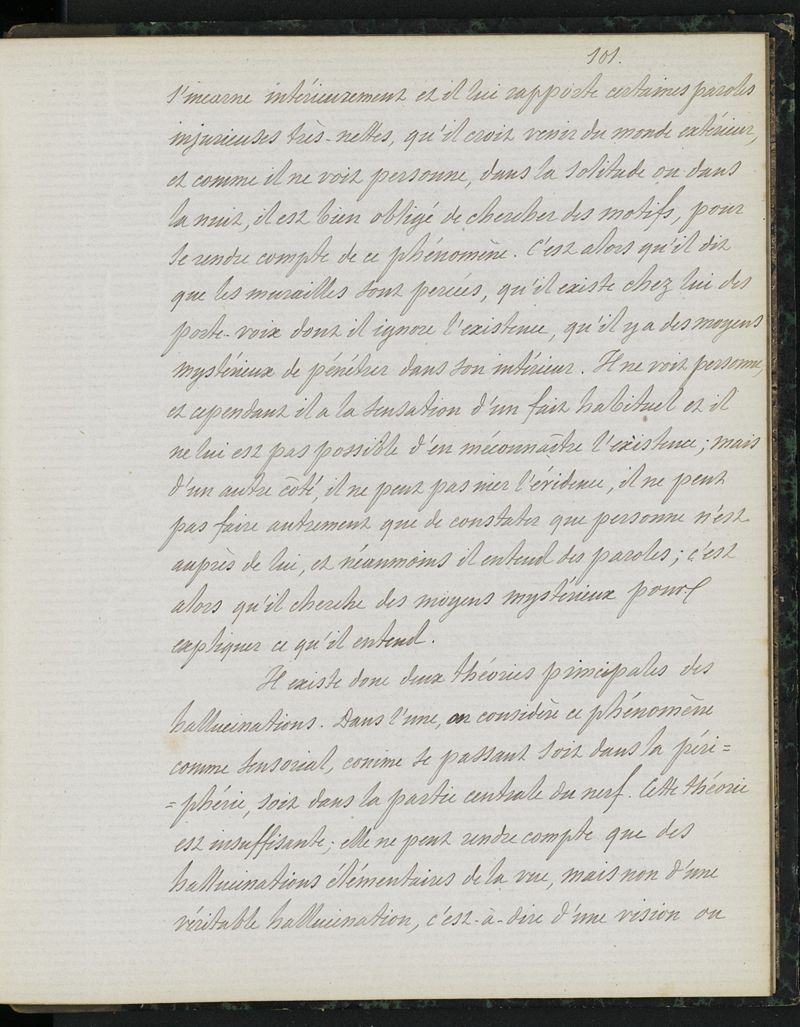 101.
s'incarne intérieurement et il lui rapporte certaines paroles
injurieuses très-nettes, qu'il croit venir du monde extérieur,
et comme il ne voit personne, dans la solitude ou dans
la nuit, il est bien obligé de chercher des motifs, pour
se rendre compte de ce phénomène. C'est alors qu'il dit
que les murailles sont percées, qu'il existe chez lui des
porte-voix dont il ignore l'existence, qu'il y a des moyens
mystérieux de pénétrer dans son intérieur. Il ne voit personne,
et cependant il a la sensation d'un fait habituel et il
ne lui est pas possible d'en méconnaître l'existence; mais
d'un autre côté, il ne peut pas nier l'évidence, il ne peut
pas faire autrement que de constater que personne n'est
auprès de lui, et néanmoins il entend des paroles; c'est
alors qu'il cherche des moyens mystérieux pour
expliquer ce qu'il entend.
Il existe donc deux théories principales des
hallucinations. Dans l'une, on considère ce phénomène
comme sensorial, comme se passant soit dans la péri=
=phérie, soit dans la partie centrale du nerf. Cette théorie
est insuffisante; elle ne peut rendre compte que des
hallucinations élémentaires de la vue, mais non d'une
véritable hallucination, c'est-à-dire d'une vision ou